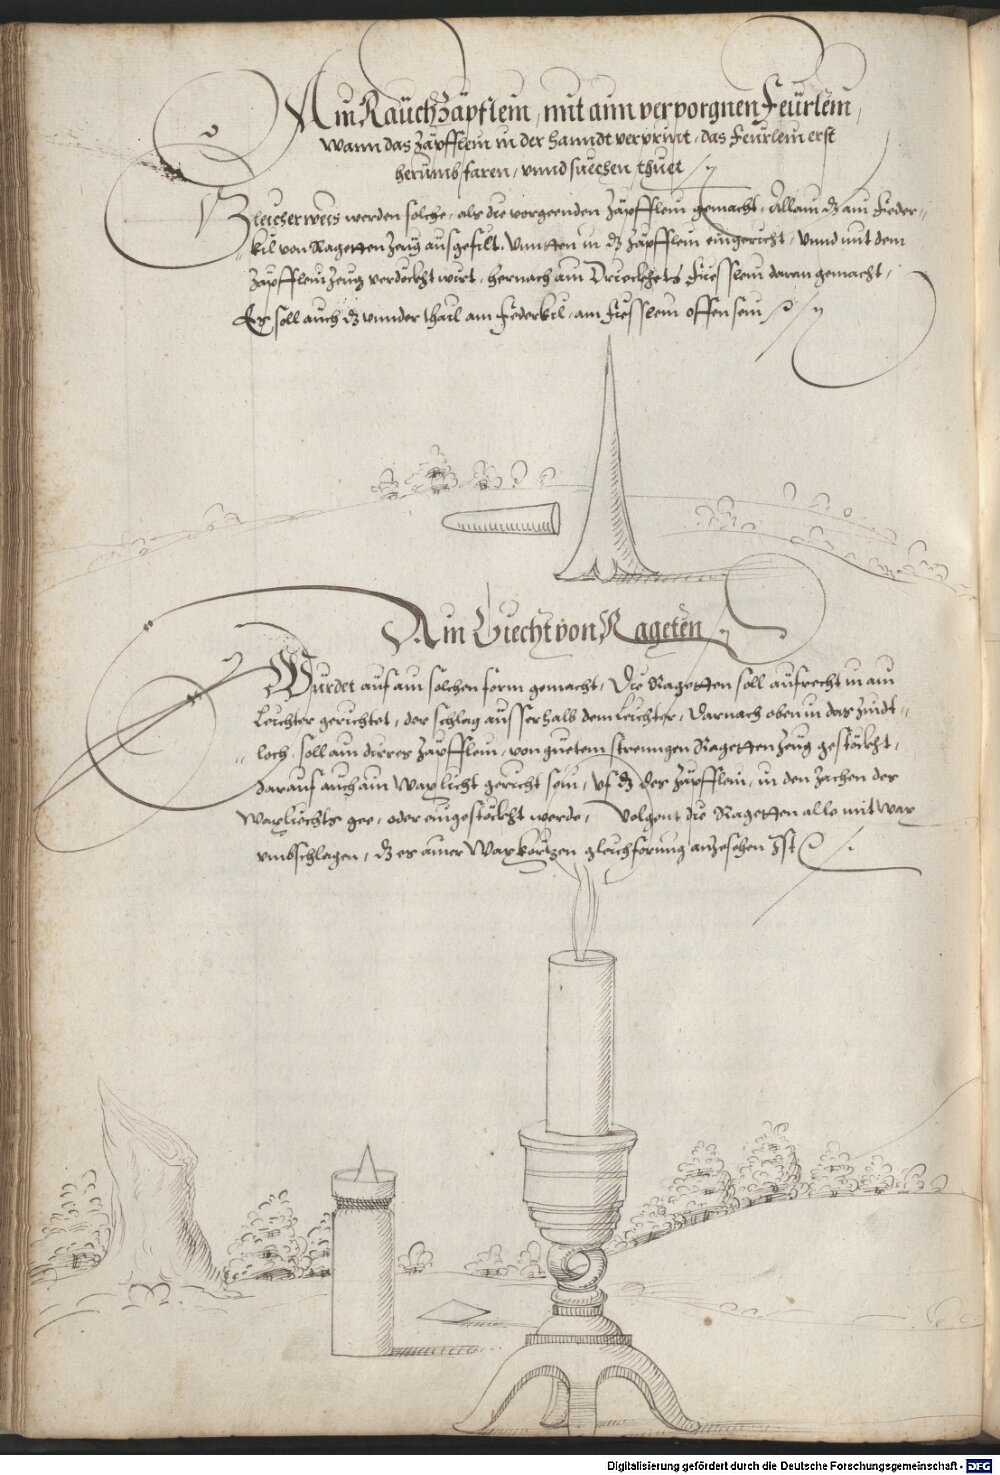 Ain Raüchzäpflein, mit aim verporgnen Feürlein,
Wann das Zäpfflein in der Hanndt verprint, das Feürlein erst
herumb faren, vnnd süechen thuet
Gleicherweis werden solche, als die vorgeenden Zäpfflein gemacht, Allain dz ain Feder-
kil von Ragetten Zeüg ausgefilt, vnnten in dz Zäpfflein eingericht, vnnd mit dem
Zäpfflein Zeug verdeckht wirt, hernach ain Drieckhets Fuesslein daran gemacht,
Es soll auch dz vnnder thail am Federkil, am Fuesslein offen sein
Ain Liecht von Rageten
Würdet auf ain solchen form gemacht, Die Ragetten soll aufrecht in ain
Leichter gerichtet, der schlag ausserhalb dem Leichter, Darnach oben in das Zindt-
loch, soll ain dirres Zäpfflein, von guetem strenngen Ragetten Zeug gesteckht,
darauf auch ain Waxlicht gericht sein, vf dz des Zäpfflein, in den Zachen des
Waxliechts gee, oder eingesteckht werde, Volgent die Ragetten alle mit Wax
vmbschlagen, dz es ainer Waxkörtzen gleichförmig anzesehen Ist
Digitalisierung gefördert durch die Deutsche Forschungsgemeinschaft - DFG